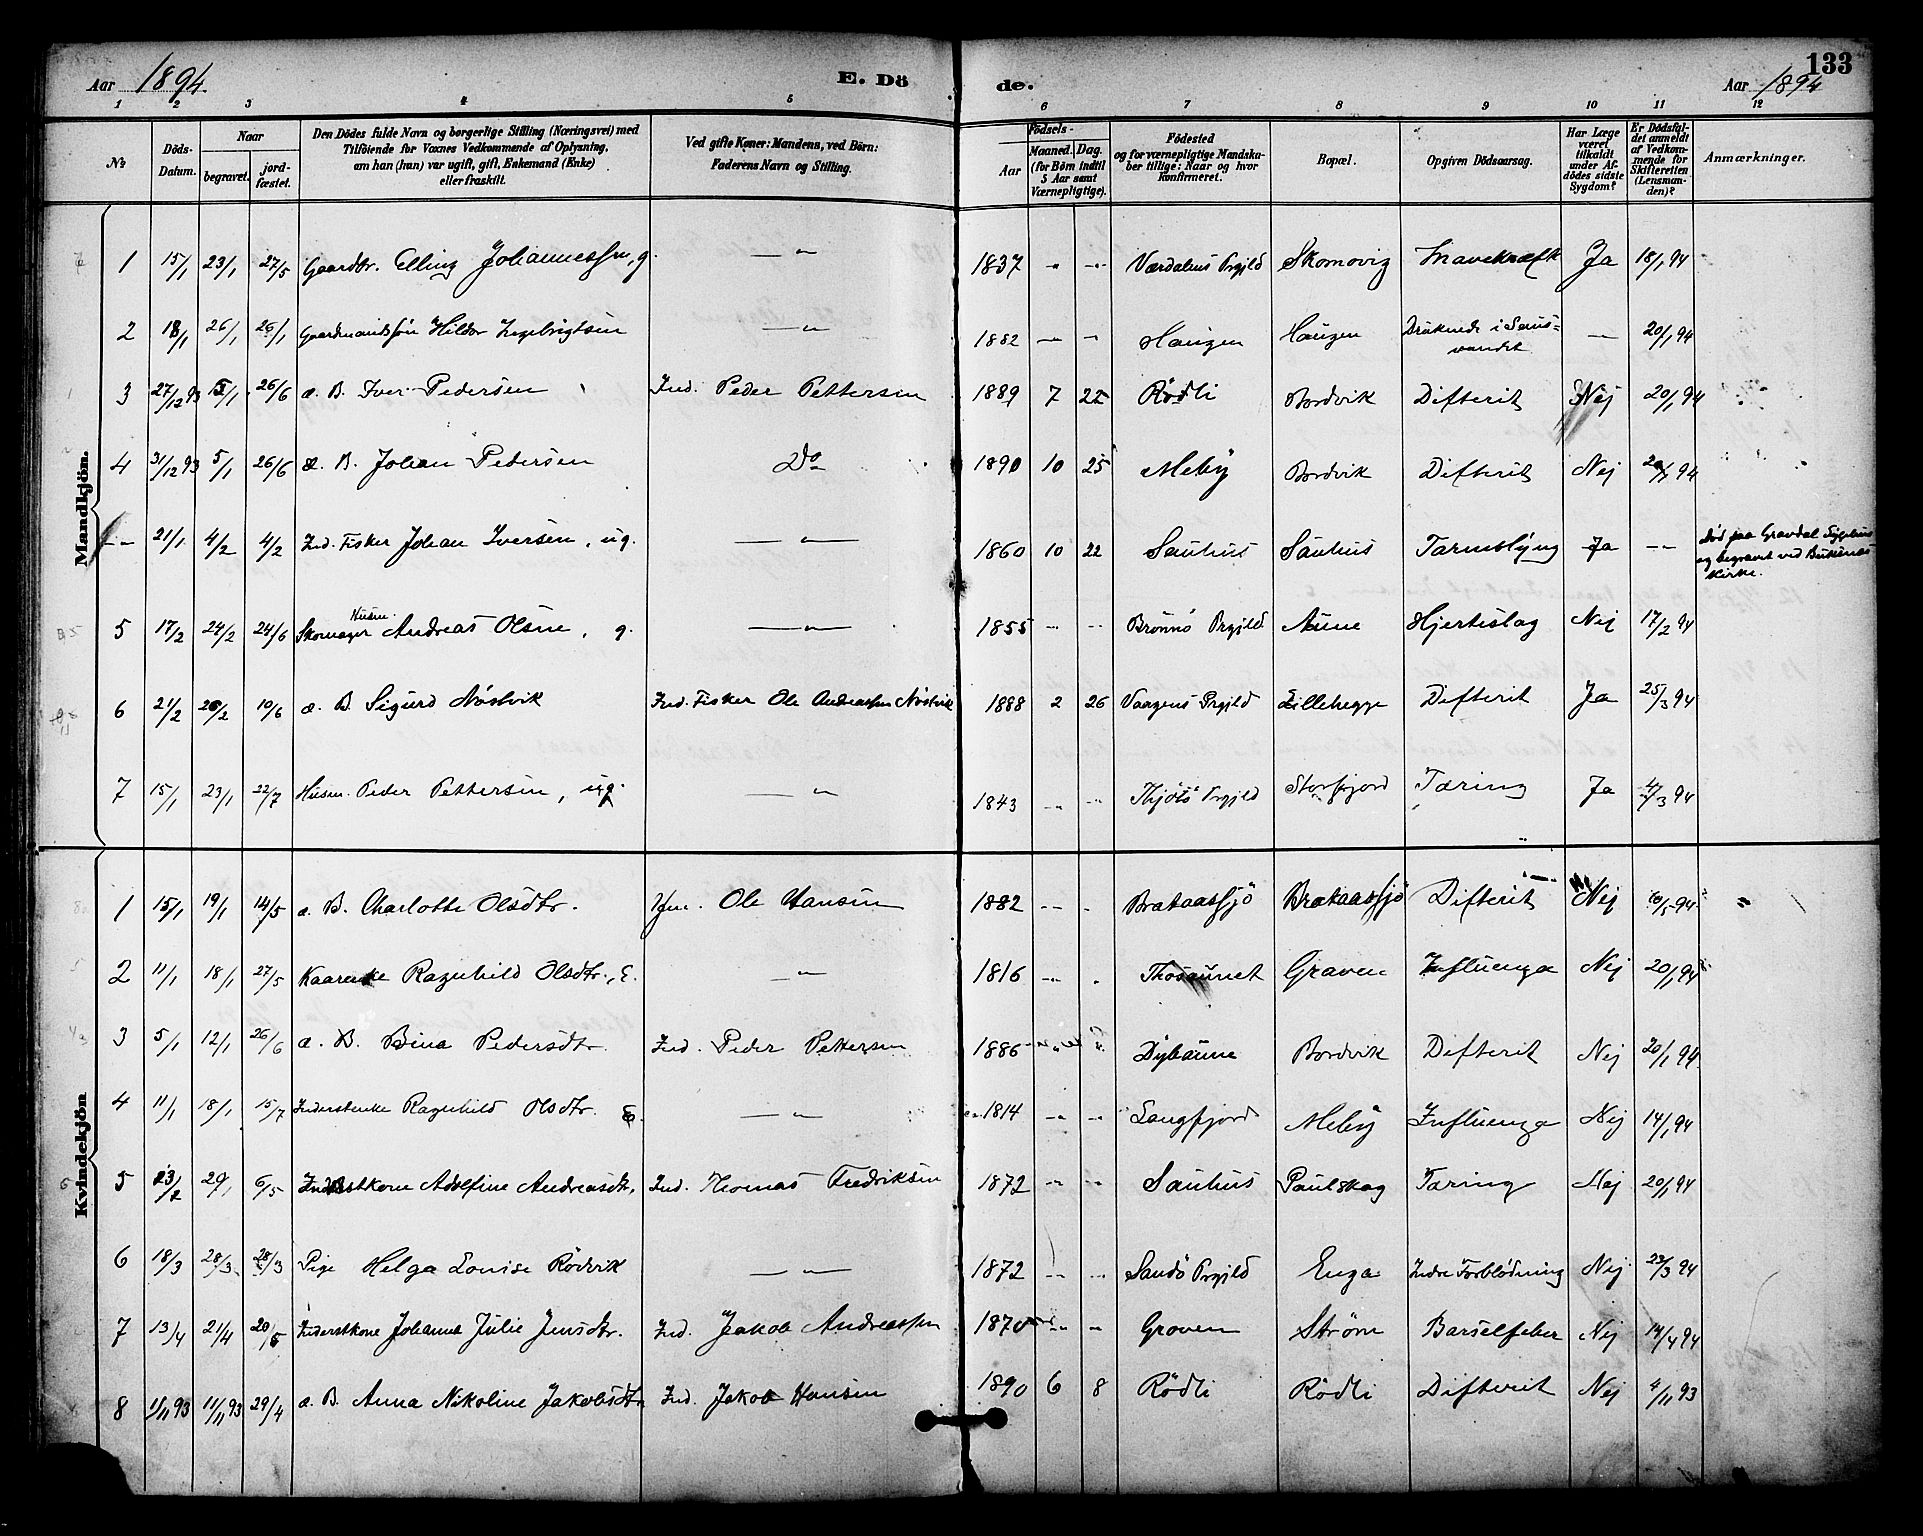 133
Aar 1894. E. Dö de. Aar 1894
1 2 3 4 5 6 7 8 9 10 11 12
№ Döds-Datum. Naar begravet. jord-fæstet. Den Dödes fulde Navn og borgerlige Stilling (Næringsvei) med Tilföiende for Voxnes Vedkommende af Oplysning, om han (hun) var ugift, gift, Enkemand (Enke) eller fraskilt. Ved gifte Koner: Mandens, ved Börn: Faderens Navn og Stilling. Födsels- Aar Maaned. Dag. (for Börn indtil 5 Aar samt Værnepligtige). Födested og for værnepligtige Mandskaber tillige: Naar og hvor konfirmeret. Bopæl. Opgiven Dödsaarsag. Har Læge været tilkaldt under Afdödes sidste Sygdom? Er Dödsfaldet anmeldt af Vedkommende for Skifteretten (Lensmanden)? Anmærkninger.
Mandkjön.
1 15/1 23/1 27/5 Gaardbr. Elling Johannessen, g. — " — 1837 " " Værdalens Prgjld Skomovig Mavekræft Ja 18/1 94
2 18/1 26/1 26/1 Gaardmandssön Hildor Ingebrigtsen — " — 1882 " " Haugen Haugen Druknede i Saus=vandet — 20/1 94
3 27/12 93 5/1 26/6 æ. B. Iver Pedersen Ind. Peder Pettersen 1889 7 22 Rödli Bordvik Difterit Nej 20/1 94
4 31/12 93 5/1 26/6 æ. B. Johan Pedersen Do 1890 10 25 Meby Bordvik Difterit Nej 20/1 94
-- 21/1 4/2 4/2 Ind. Fisker Johan Iversen, ug. — " — 1860 10 22 Sauhus Sauhus Tarmslyng Ja -- Död paa Gravdal Sygehus og begravet ved Buksnæs Kirke.
5 17/2 24/2 24/6 Husm. Skomager Andreas Olsen, g. — " — 1855 " " Brönnö Prgjld Aune Hjerteslag Nej 17/2 94
6 21/2 26/2 10/6 æ. B. Sigurd Növik Ind. Fisker Ole Andreassen 1888 2 26 Vaagens Prgjld Lillehegge Difterit Ja 25/3 94
7 15/1 23/1 22/7 Husm. Peder Pettersen, ug. — " — 1843 " " Thjötö Prgjld Storfjord Tæring Ja 4/3 94
Kvindekjön
1 15/1 19/1 14/5 æ. B. Charlotte Olsdtr. Ole Hansen 1882 " " Brataassjö Brataassjö Difterit Nej 10/5 94 "
2 11/1 18/1 27/5 Kaarenke Ragnhild Olsdtr., E. — " — 1816 " " Thosaunet Graven Influenza Nej 20/1 94
3 5/1 12/1 26/6 æ. B. Bina Pedersdtr Ind. Peder Pettersen 1886 " " Dybaune Bordvik Difterit Nej 20/1 94
4 11/1 18/1 15/7 Inderstenke Ragnhild Olsdtr. E. — " — 1814 " " Langfjord Meby Influenza Nej 14/1 94
5 23/2 29/1 6/5 Inderstkone Adolfine Andreasdtr, Ind. Thomas Fredriksen 1872 " " Sauhus Paulskag Tæring Nej 20/1 94
6 18/3 28/3 28/3 Pige Helga Louise Rödvik — " — 1872 " " Sandö Prgjld Enga Indre Forblödning Nej 23/3 94
7 13/4 21/4 20/5 Inderstkone Johanna Julie Jensdtr. Ind. Jakob Andreassen 1870 " " Groven Ström Barselfeber Nej 14/4 94
8 1/11 93 11/11 93 29/4 æ. B. Anna Nikoline Jakobsdtr Ind. Jakob Hansen 1890 6 8 Rödli Rödli Difterit Nej 4/11 93